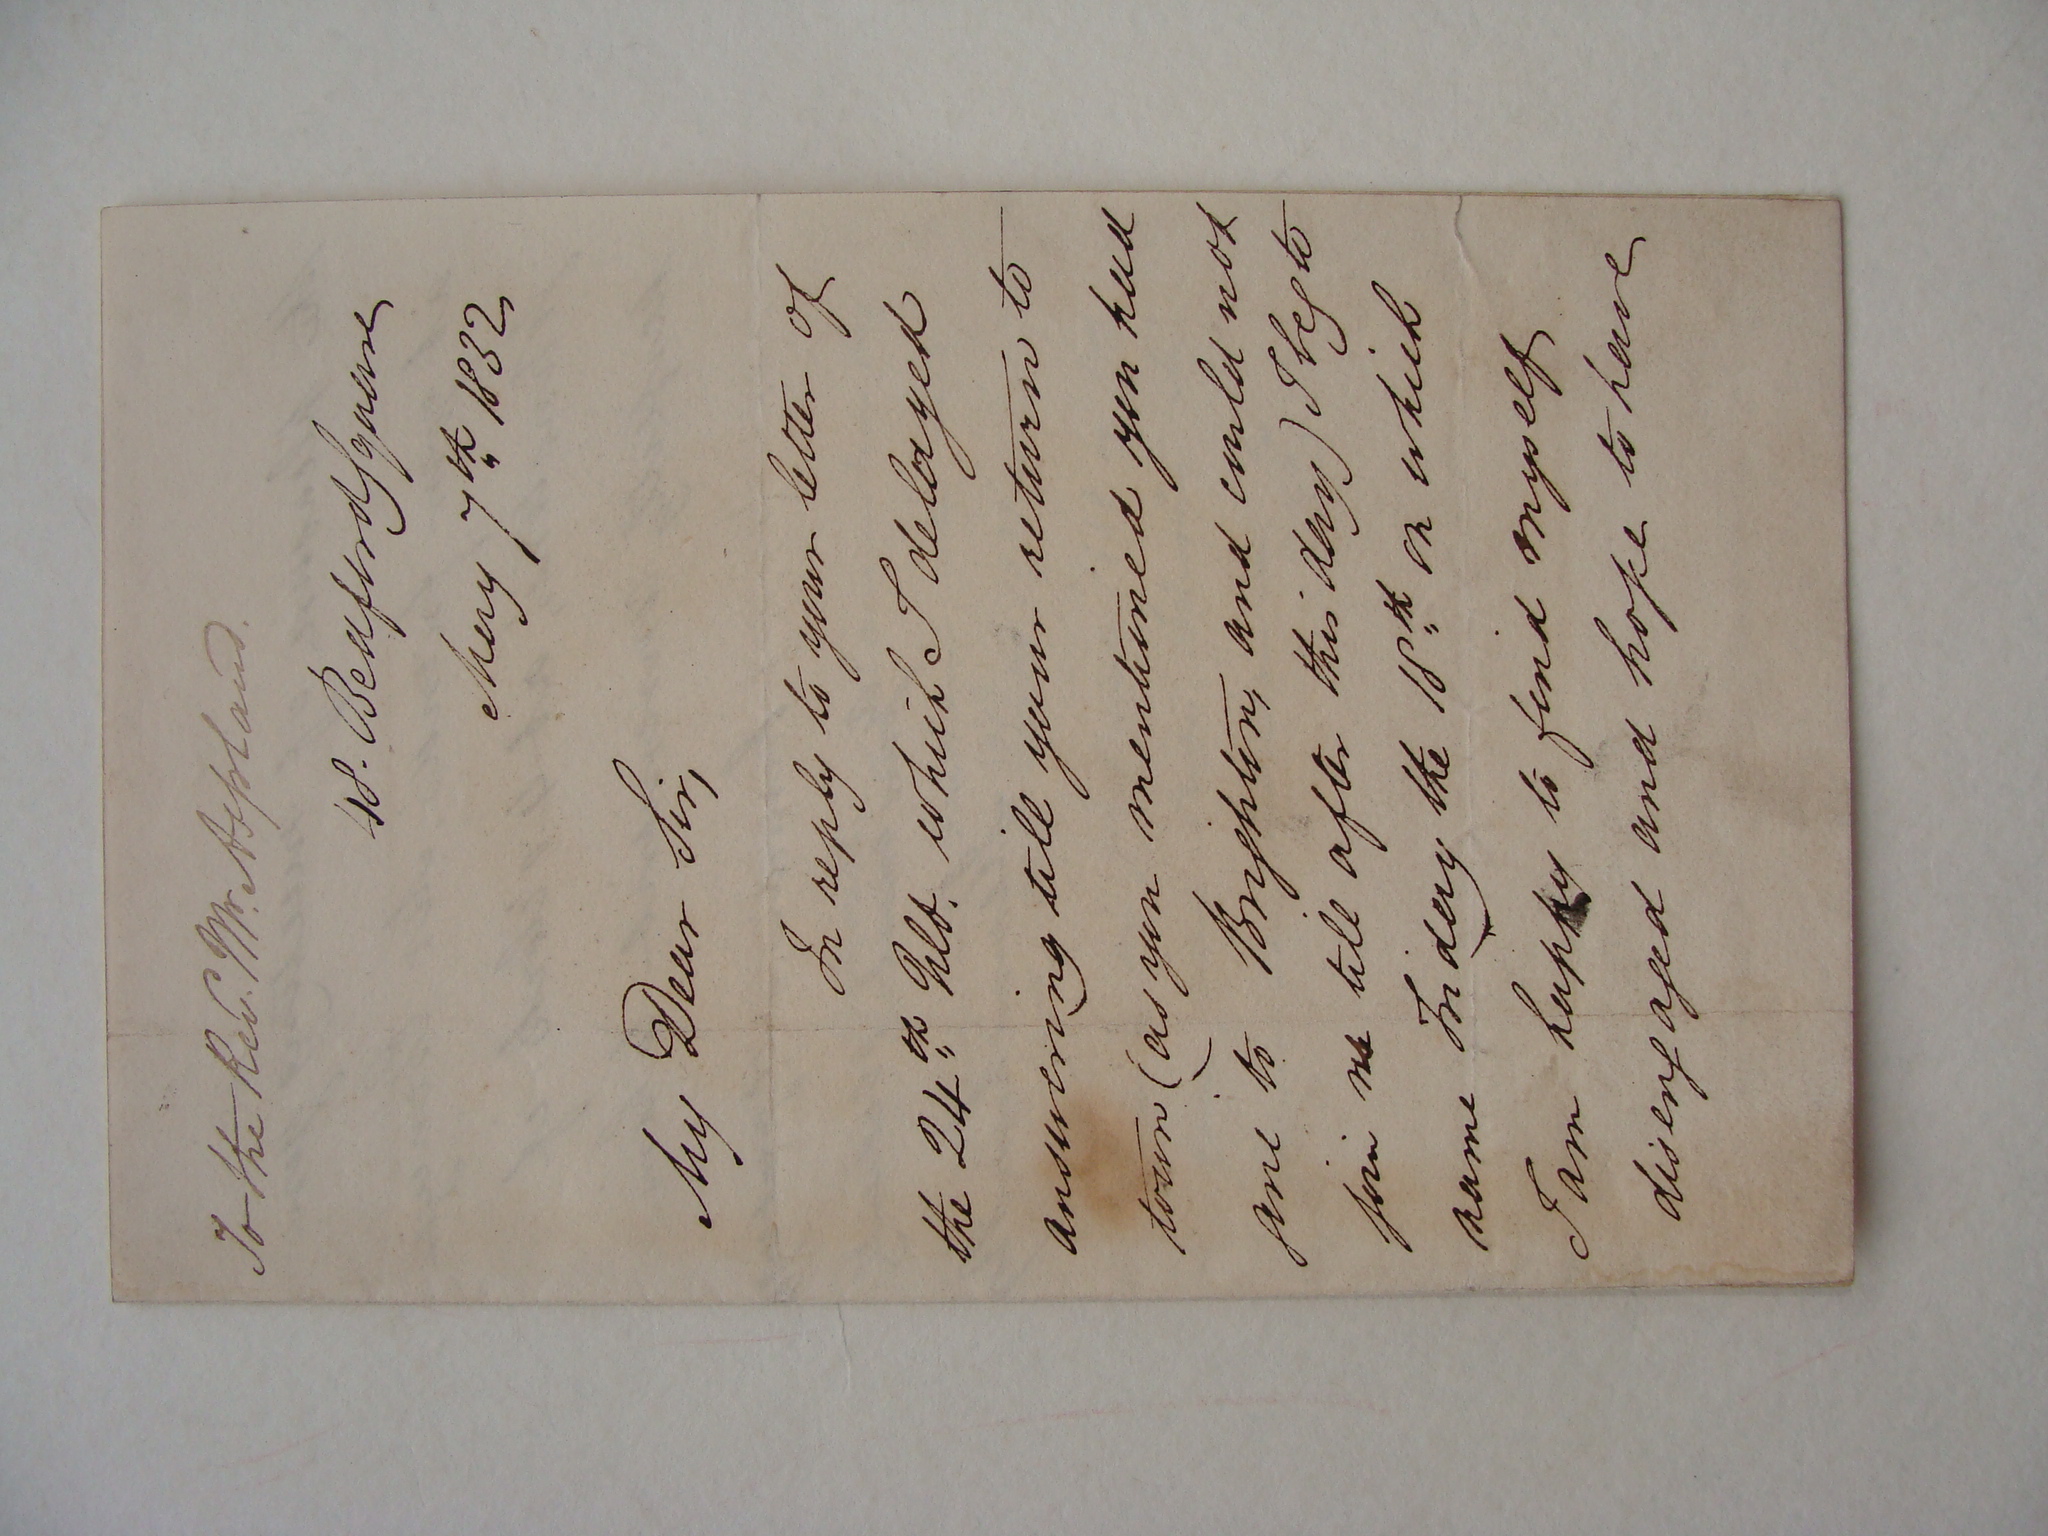 To the Rev. Mr. Aspland.
48. Bedford Square
May 7th 1832,
My Dear Sir,
In reply to your letter of
the 24th Ult. which I delayed
answering till your return to
town (as you mentioned you had
gone to Brighton, and could not
join us till after this day) I beg to
name Friday the 18th on which
I am happy to find myself
disengaged and hope to have